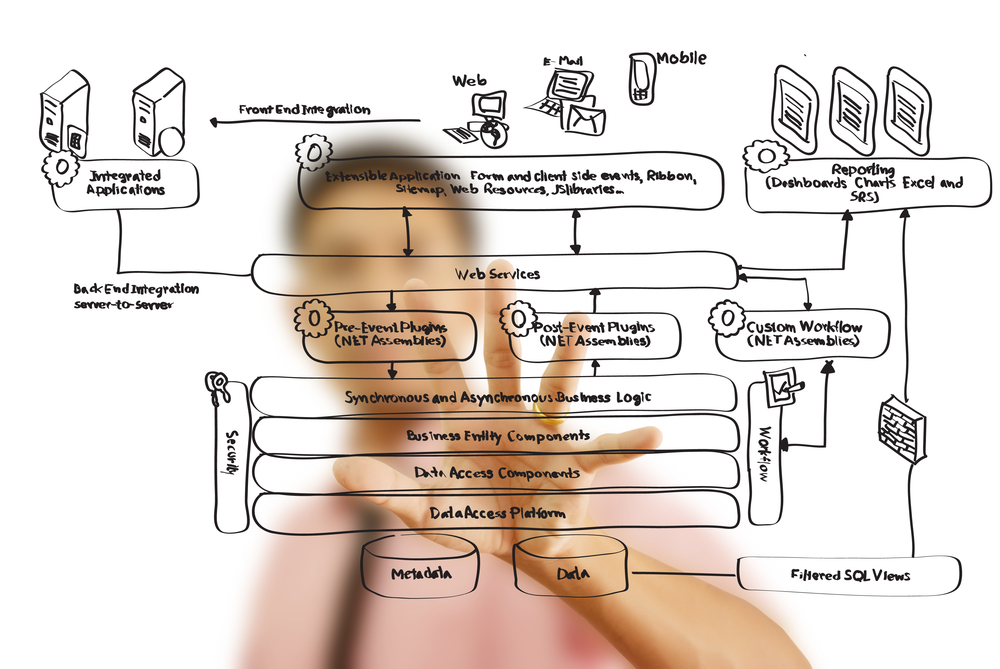 Web
E-Mail
Mobile
Front End Integration
Integrated
Applications
Extensible Application Form and client side events, Ribbon,
Sitemap, Web Resources, JSlibraries...
Reporting
(Dashboards Charts Excel and
SRS)
Web Services
Back End Integration
server-to-server
Pre-Event Plugins
(NET Assemblies)
Post-Event Plugins
(NET Assemblies)
Custom Workflow
(NET Assemblies)
Security
Synchronous and Asynchronous Business Logic
Business Entity Components
Data Access Components
Data Access Platform
Workflow
Metadata
Data
Filtered SQL Views